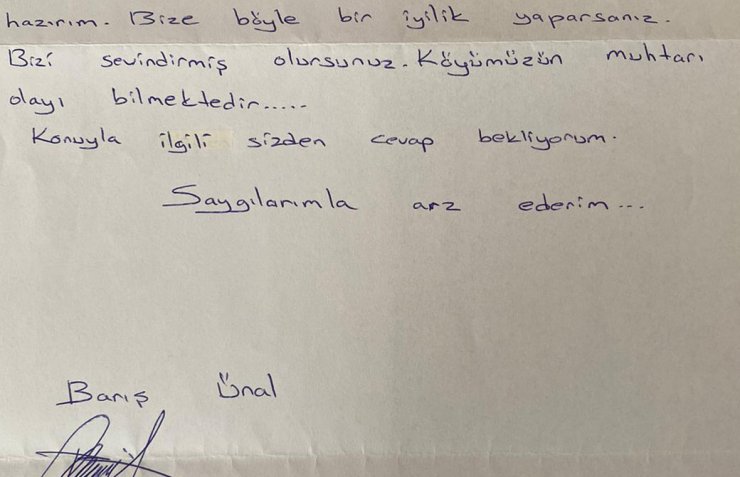 hazırım. Bize böyle bir iyilik yaparsanız.
Bizi sevindirmiş olursunuz. Köyümüzün muhtarı
olayı bilmektedir.....
Konuyla ilgili sizden cevap bekliyorum.
Saygılarımla arz ederim...
Barış Ünal